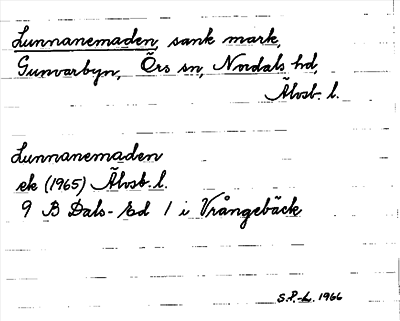 Lunnanemaden, sank mark,
Gunvarbyn, Örs sn, Nordals hd,
Älvsb. l.
Lunnanemaden
ek (1965) Älvsb. l.
9 B Dals-Ed 1 i Vrångebäck
S.P.-L. 1966